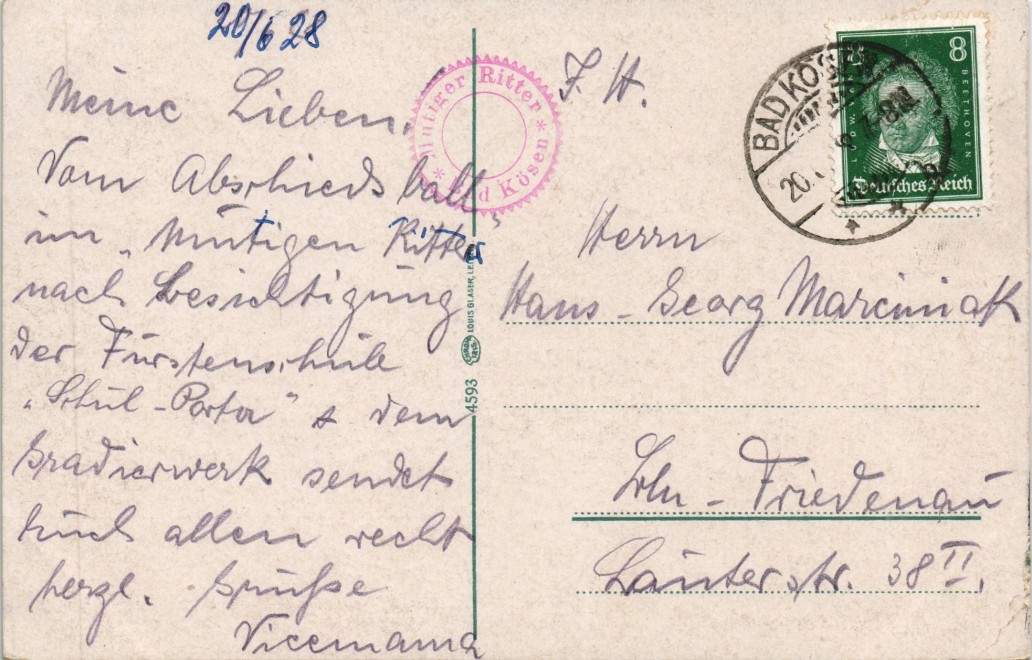 20/6 28
Meine Lieben,
Vom Abschieds halt
im „Mutigen Ritter"
nach Besichtigung
der Fürstenschule
„Schul-Porta" & dem
Gradierwerk sendet
Euch allen recht
herzl. Grüße
Vicemama
Mutiger Ritter
* Bad Kösen *
4593
LOUIS GLASER, LEIPZIG
F. H.
BAD KÖSEN
20.
8
BEETHOVEN
Deutsches Reich
Herrn
Hans-Georg Marciniak
Bln-Friedenau
Lauterstr. 38 II.